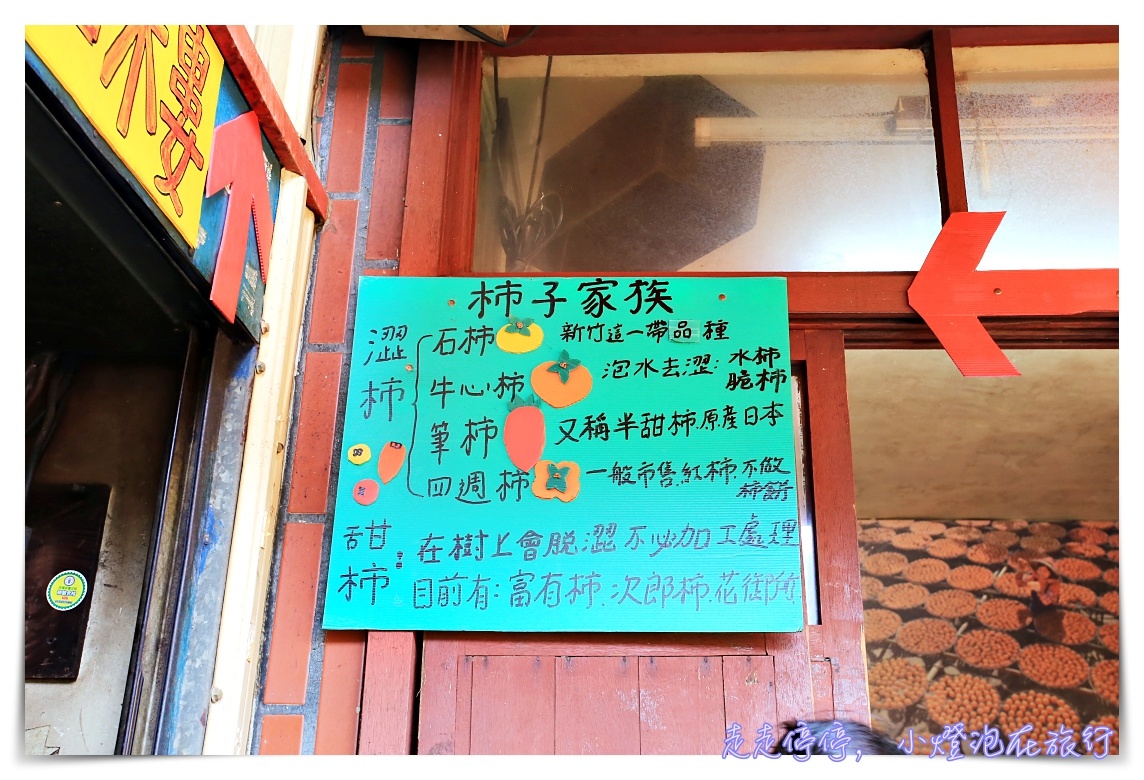 樓
柿子家族
澀柿
石柿 新竹這一帶品種
牛心柿 泡水去澀:水柿
脆柿
筆柿 又稱半甜柿.原產日本
四週柿 一般市售.紅柿.不做
柿餅
甜柿:在樹上會脫澀 不必加工處理
目前有:富有柿.次郎柿.花御所
走走停停, 小燈泡在旅行